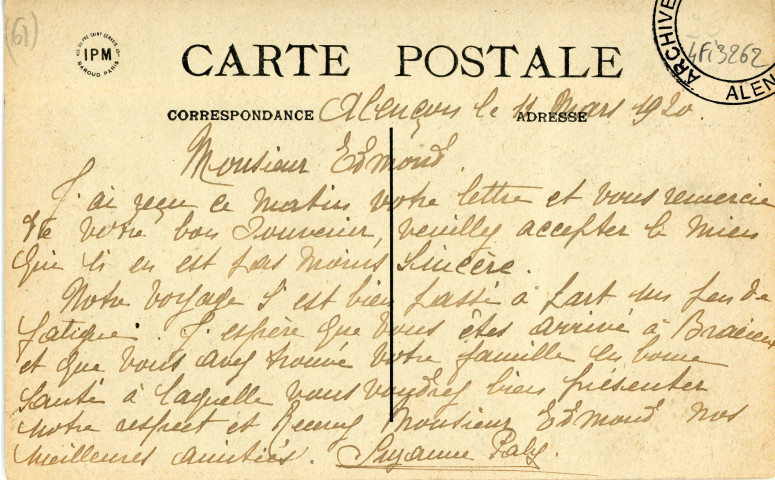 (61)
RUE DU PRÉ SAINT GERVAIS
IPM
BAROUD PARIS
CARTE POSTALE
ARCHIVE
4Fi3262
ALEN
CORRESPONDANCE
ADRESSE
Alençon le 11 Mars 1920.
Monsieur Edmond.
J'ai reçu ce matin votre lettre et vous remercie
de votre bon souvenir, veuillez accepter le mien
qui n'en est pas moins sincère.
Notre voyage s'est bien passé à part un peu de
fatigue. J'espère que vous êtes arrivé à
et que vous avez trouvé votre famille en bonne
santé à laquelle vous voudrez bien présenter
notre respect et Recevez Monsieur Edmond nos
meilleures amitiés. Suzanne